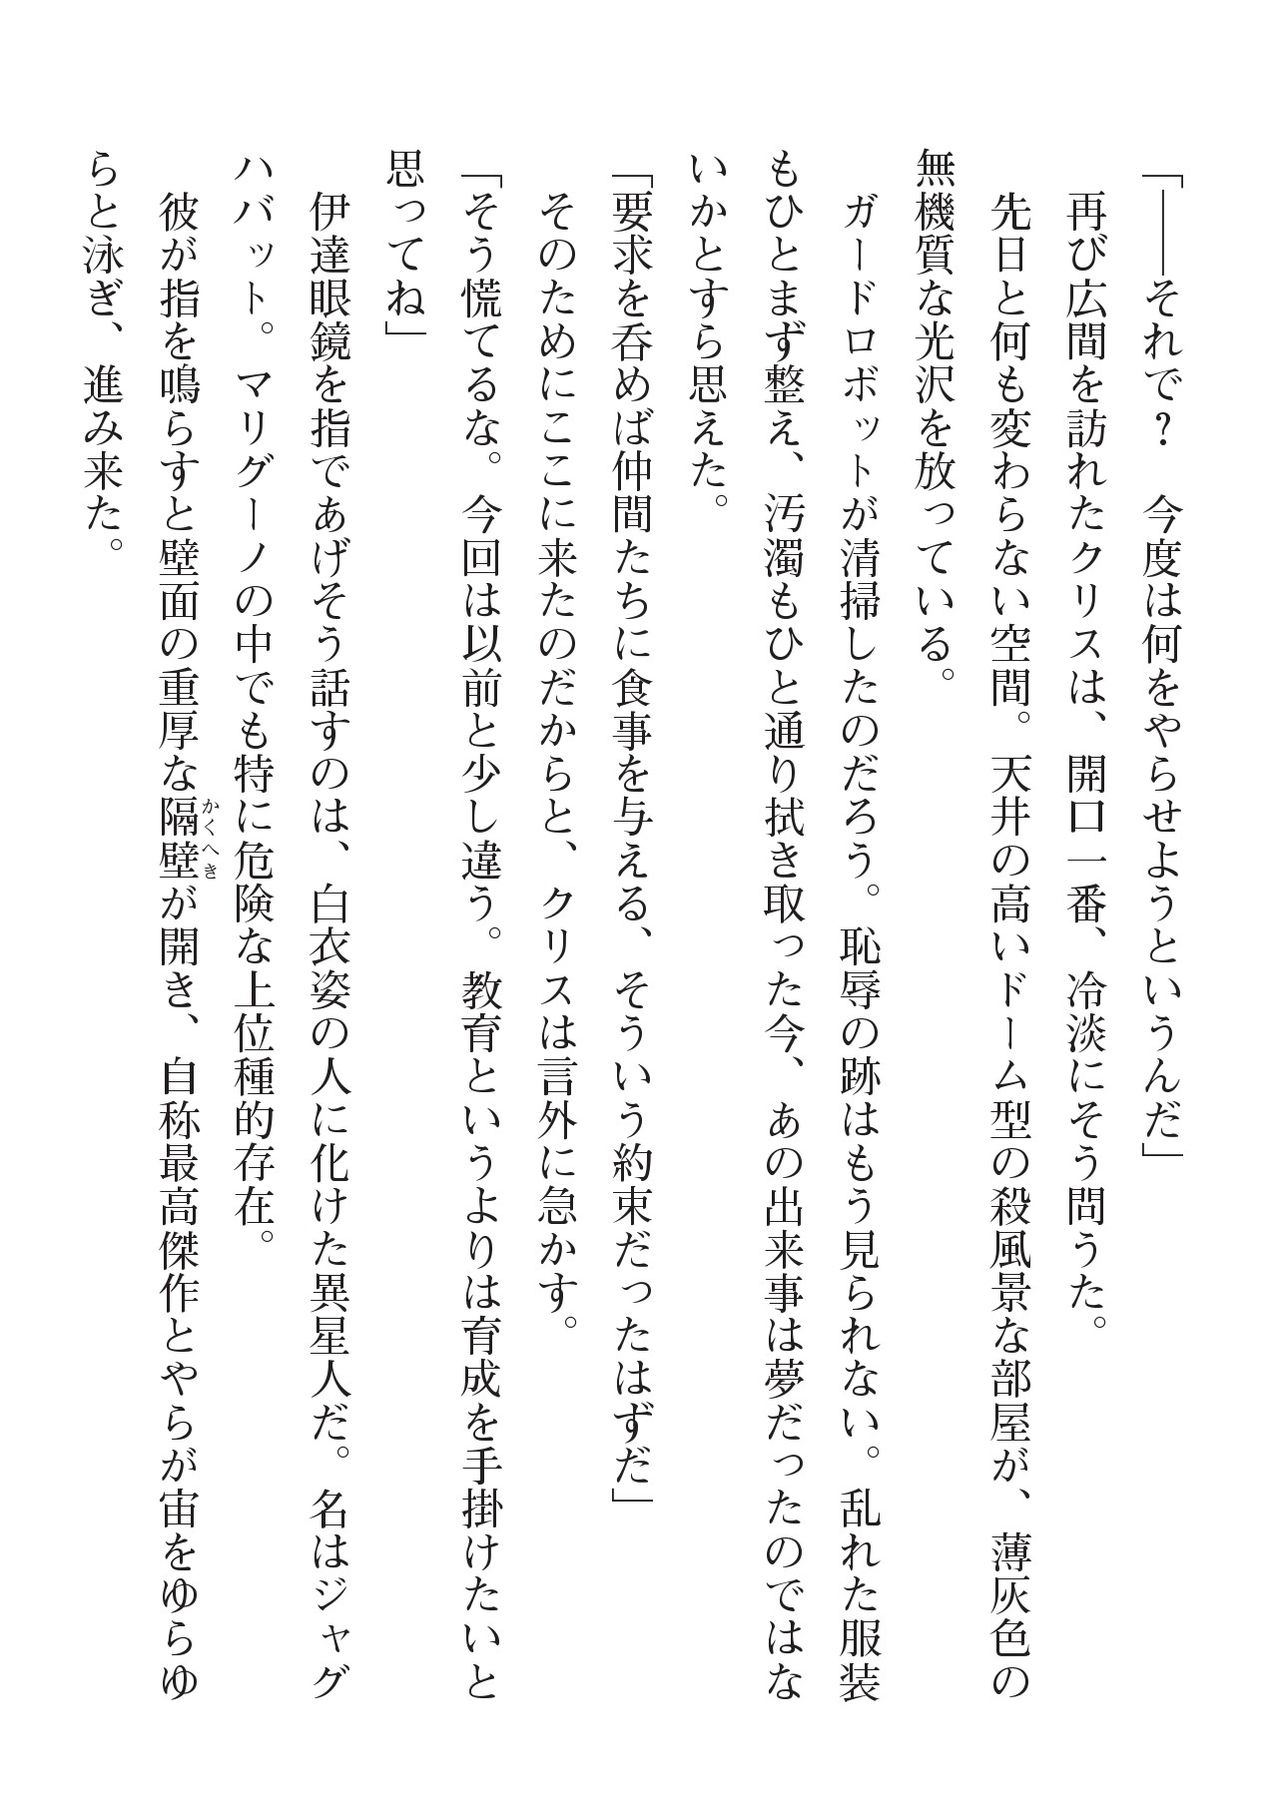 「――それで？　今度は何をやらせようというんだ」
　再び広間を訪れたクリスは、開口一番、冷淡にそう問うた。
　先日と何も変わらない空間。天井の高いドーム型の殺風景な部屋が、薄灰色の
無機質な光沢を放っている。
　ガードロボットが清掃したのだろう。恥辱の跡はもう見られない。乱れた服装
もひとまず整え、汚濁もひと通り拭き取った今、あの出来事は夢だったのではな
いかとすら思えた。
「要求を呑めば仲間たちに食事を与える、そういう約束だったはずだ」
　そのためにここに来たのだからと、クリスは言外に急かす。
「そう慌てるな。今回は以前と少し違う。教育というよりは育成を手掛けたいと
思ってね」
　伊達眼鏡を指であげそう話すのは、白衣姿の人に化けた異星人だ。名はジャグ
ハバット。マリグーノの中でも特に危険な上位種的存在。
　彼が指を鳴らすと壁面の重厚な隔壁が開き、自称最高傑作とやらが宙をゆらゆ
かくへき
らと泳ぎ、進み来た。